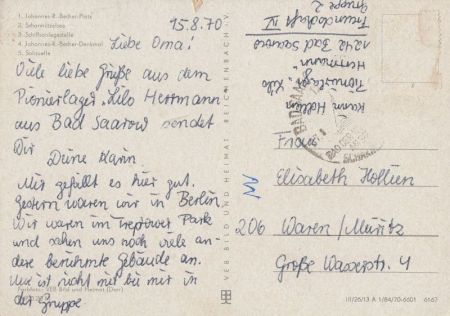 1. Johannes-R.-Becher-Platz
2. Scharmützelsee
3. Schiffsanlegestelle
4. Johannes-R.-Becher-Denkmal
5. Solquelle
15.8.70.
Liebe Oma!
Viele liebe Grüße aus dem
Pionierlager „Lilo Herrmann"
aus Bad Saarow sendet
Dir Deine Karin.
Mir gefällt es hier gut.
Gestern waren wir in Berlin.
Wir waren im Treptower Park
und sahen uns noch viele an-
dere berühmte Gebäude an.
ist nicht mit bei mir in
der Gruppe.
VEB Bild und Heimat (Darr)
VEB BILD UND HEIMAT REICHENBACH I. V.
Karin Hollien
Pionierlager „Lilo
Herrmann"
1242 Bad Saarow
Freundschaft IV
Gruppe 2
BAD SAAROW
Frau
Elisabeth Hollien
206 Waren/Müritz
Große Wasserstr. 4
III/26/13 A 1/84/70-6601 6167